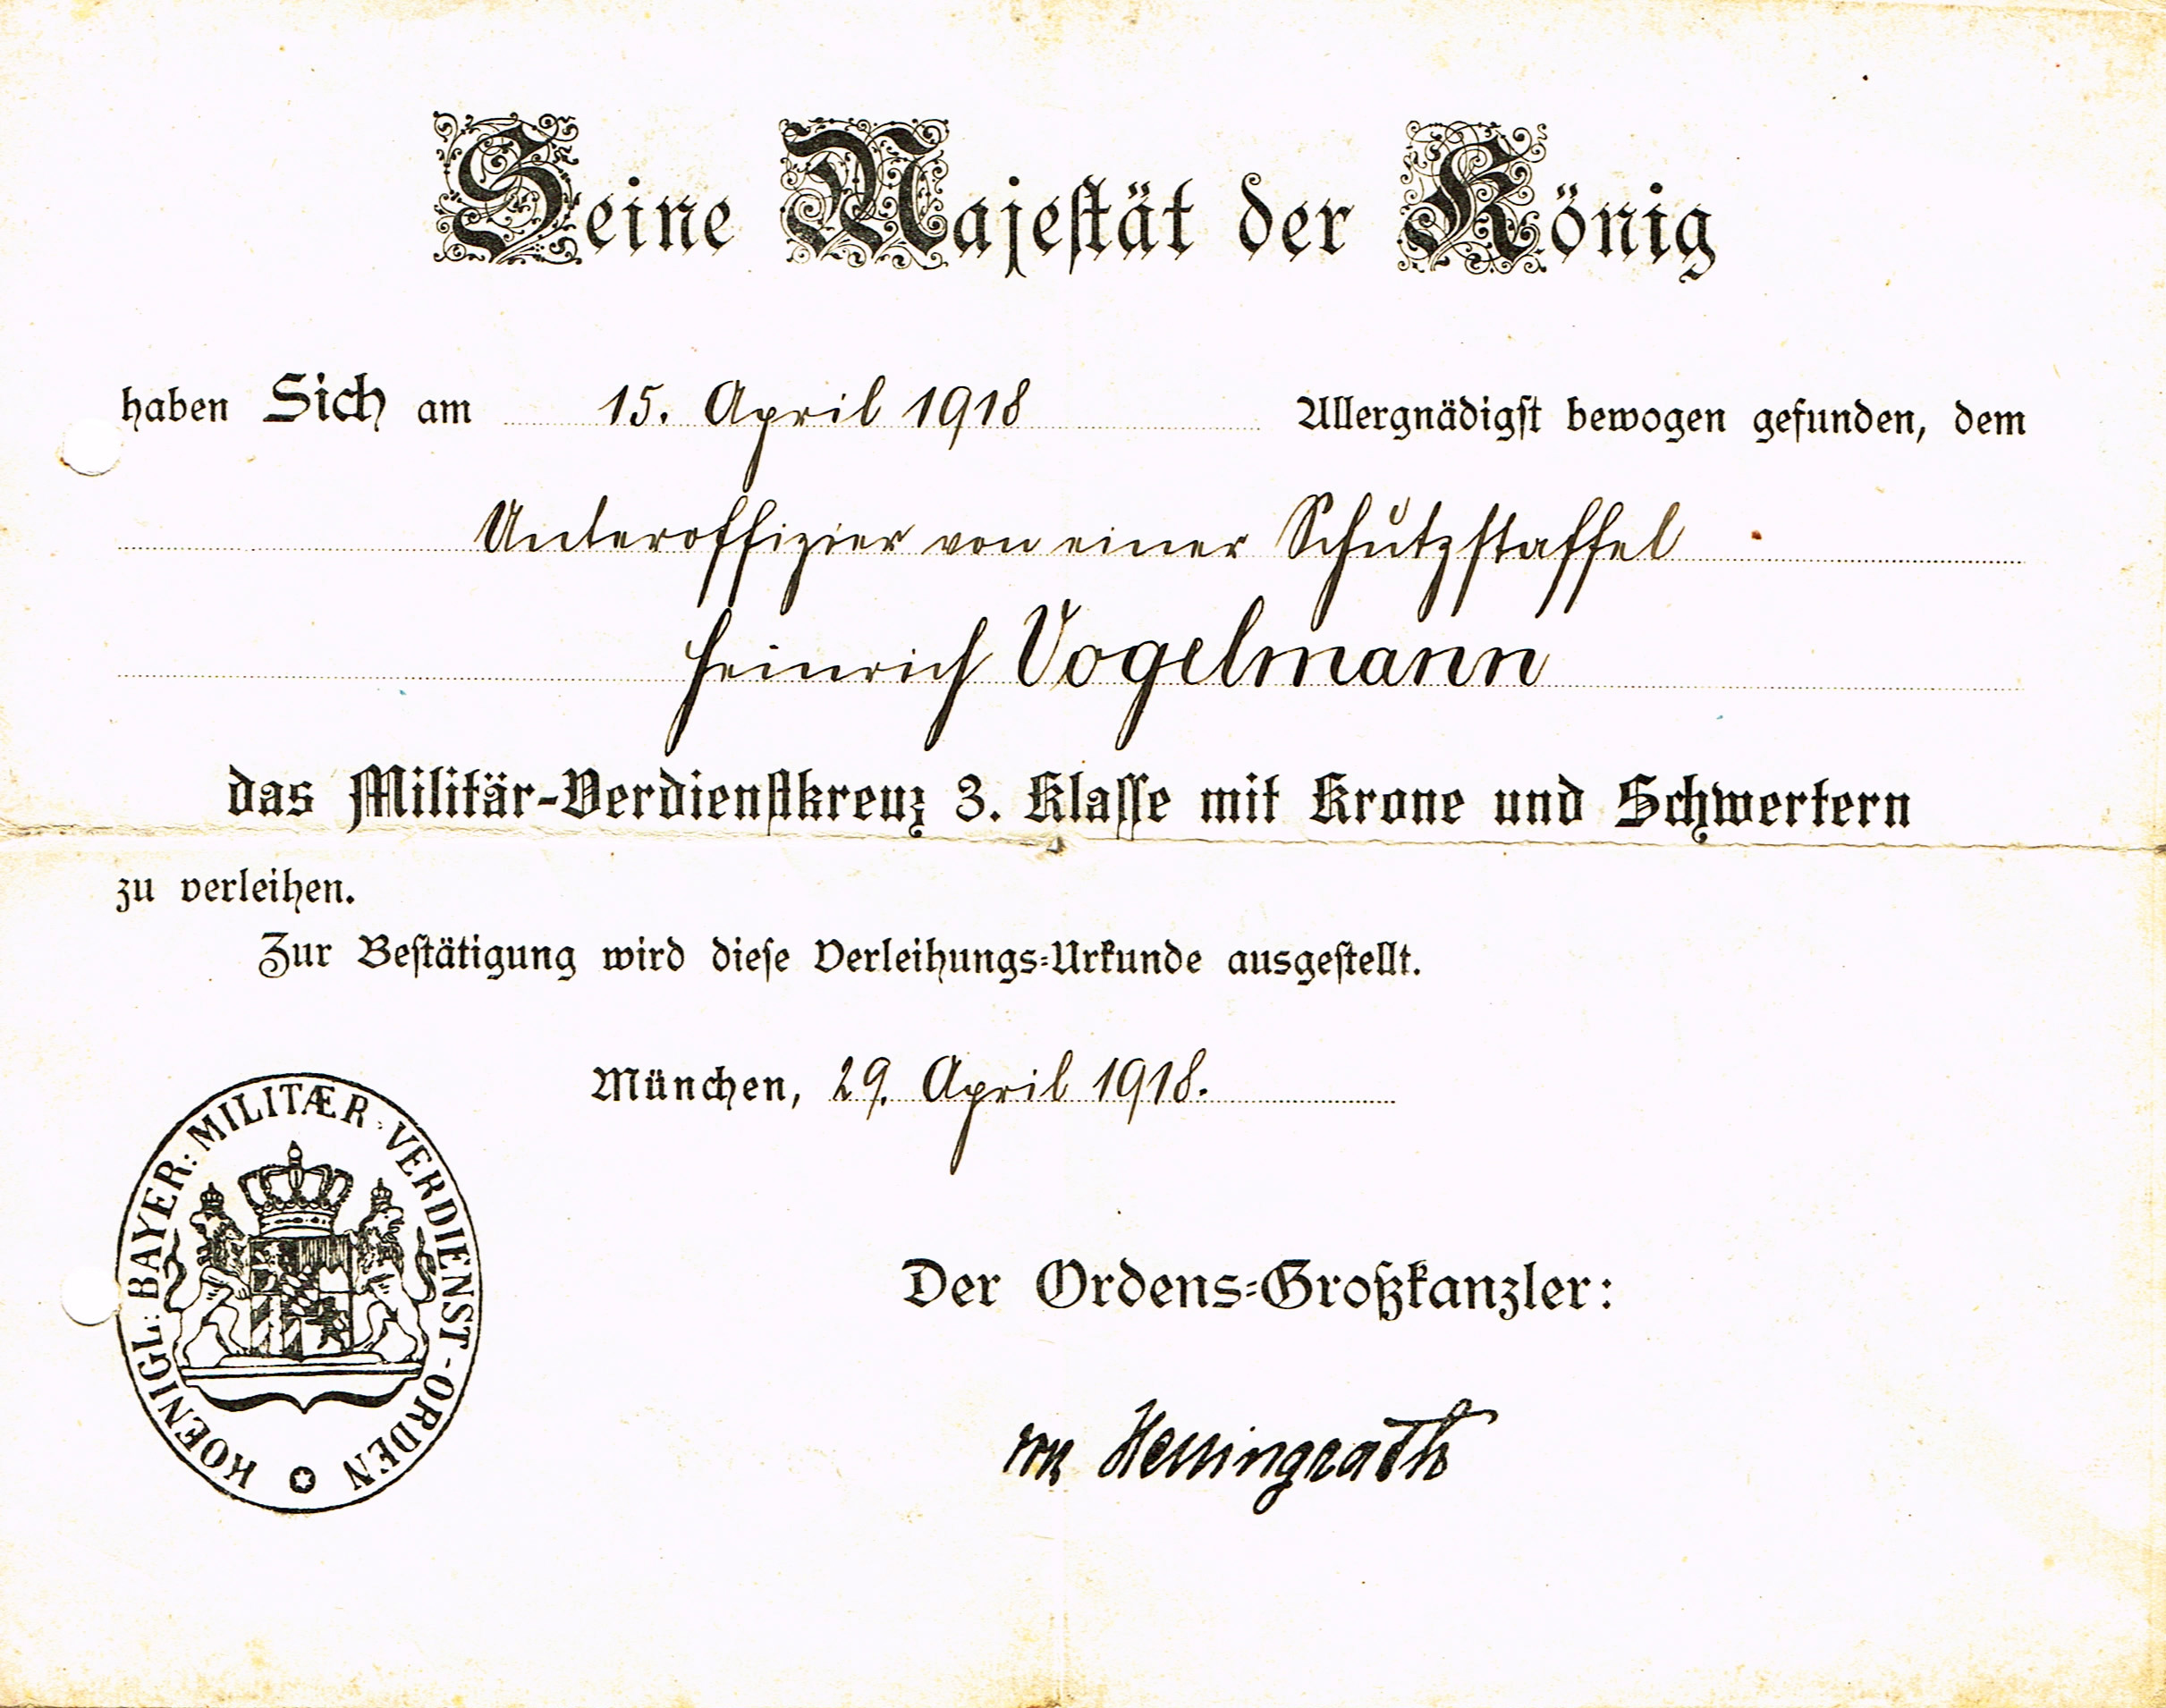 Seine Majestät der König
haben Sich am 15. April 1918 Allergnädigst bewogen gefunden, dem
Unteroffizier von einer Schutzstaffel
Heinrich Vogelmann
das Militär-Verdienstkreuz 3. Klasse mit Krone und Schwertern
zu verleihen.
Zur Bestätigung wird diese Verleihungs-Urkunde ausgestellt.
München, 29. April 1918.
KOENIGL: BAYER: MILITÆR-VERDIENST-ORDEN
Der Ordens-Großkanzler:
von